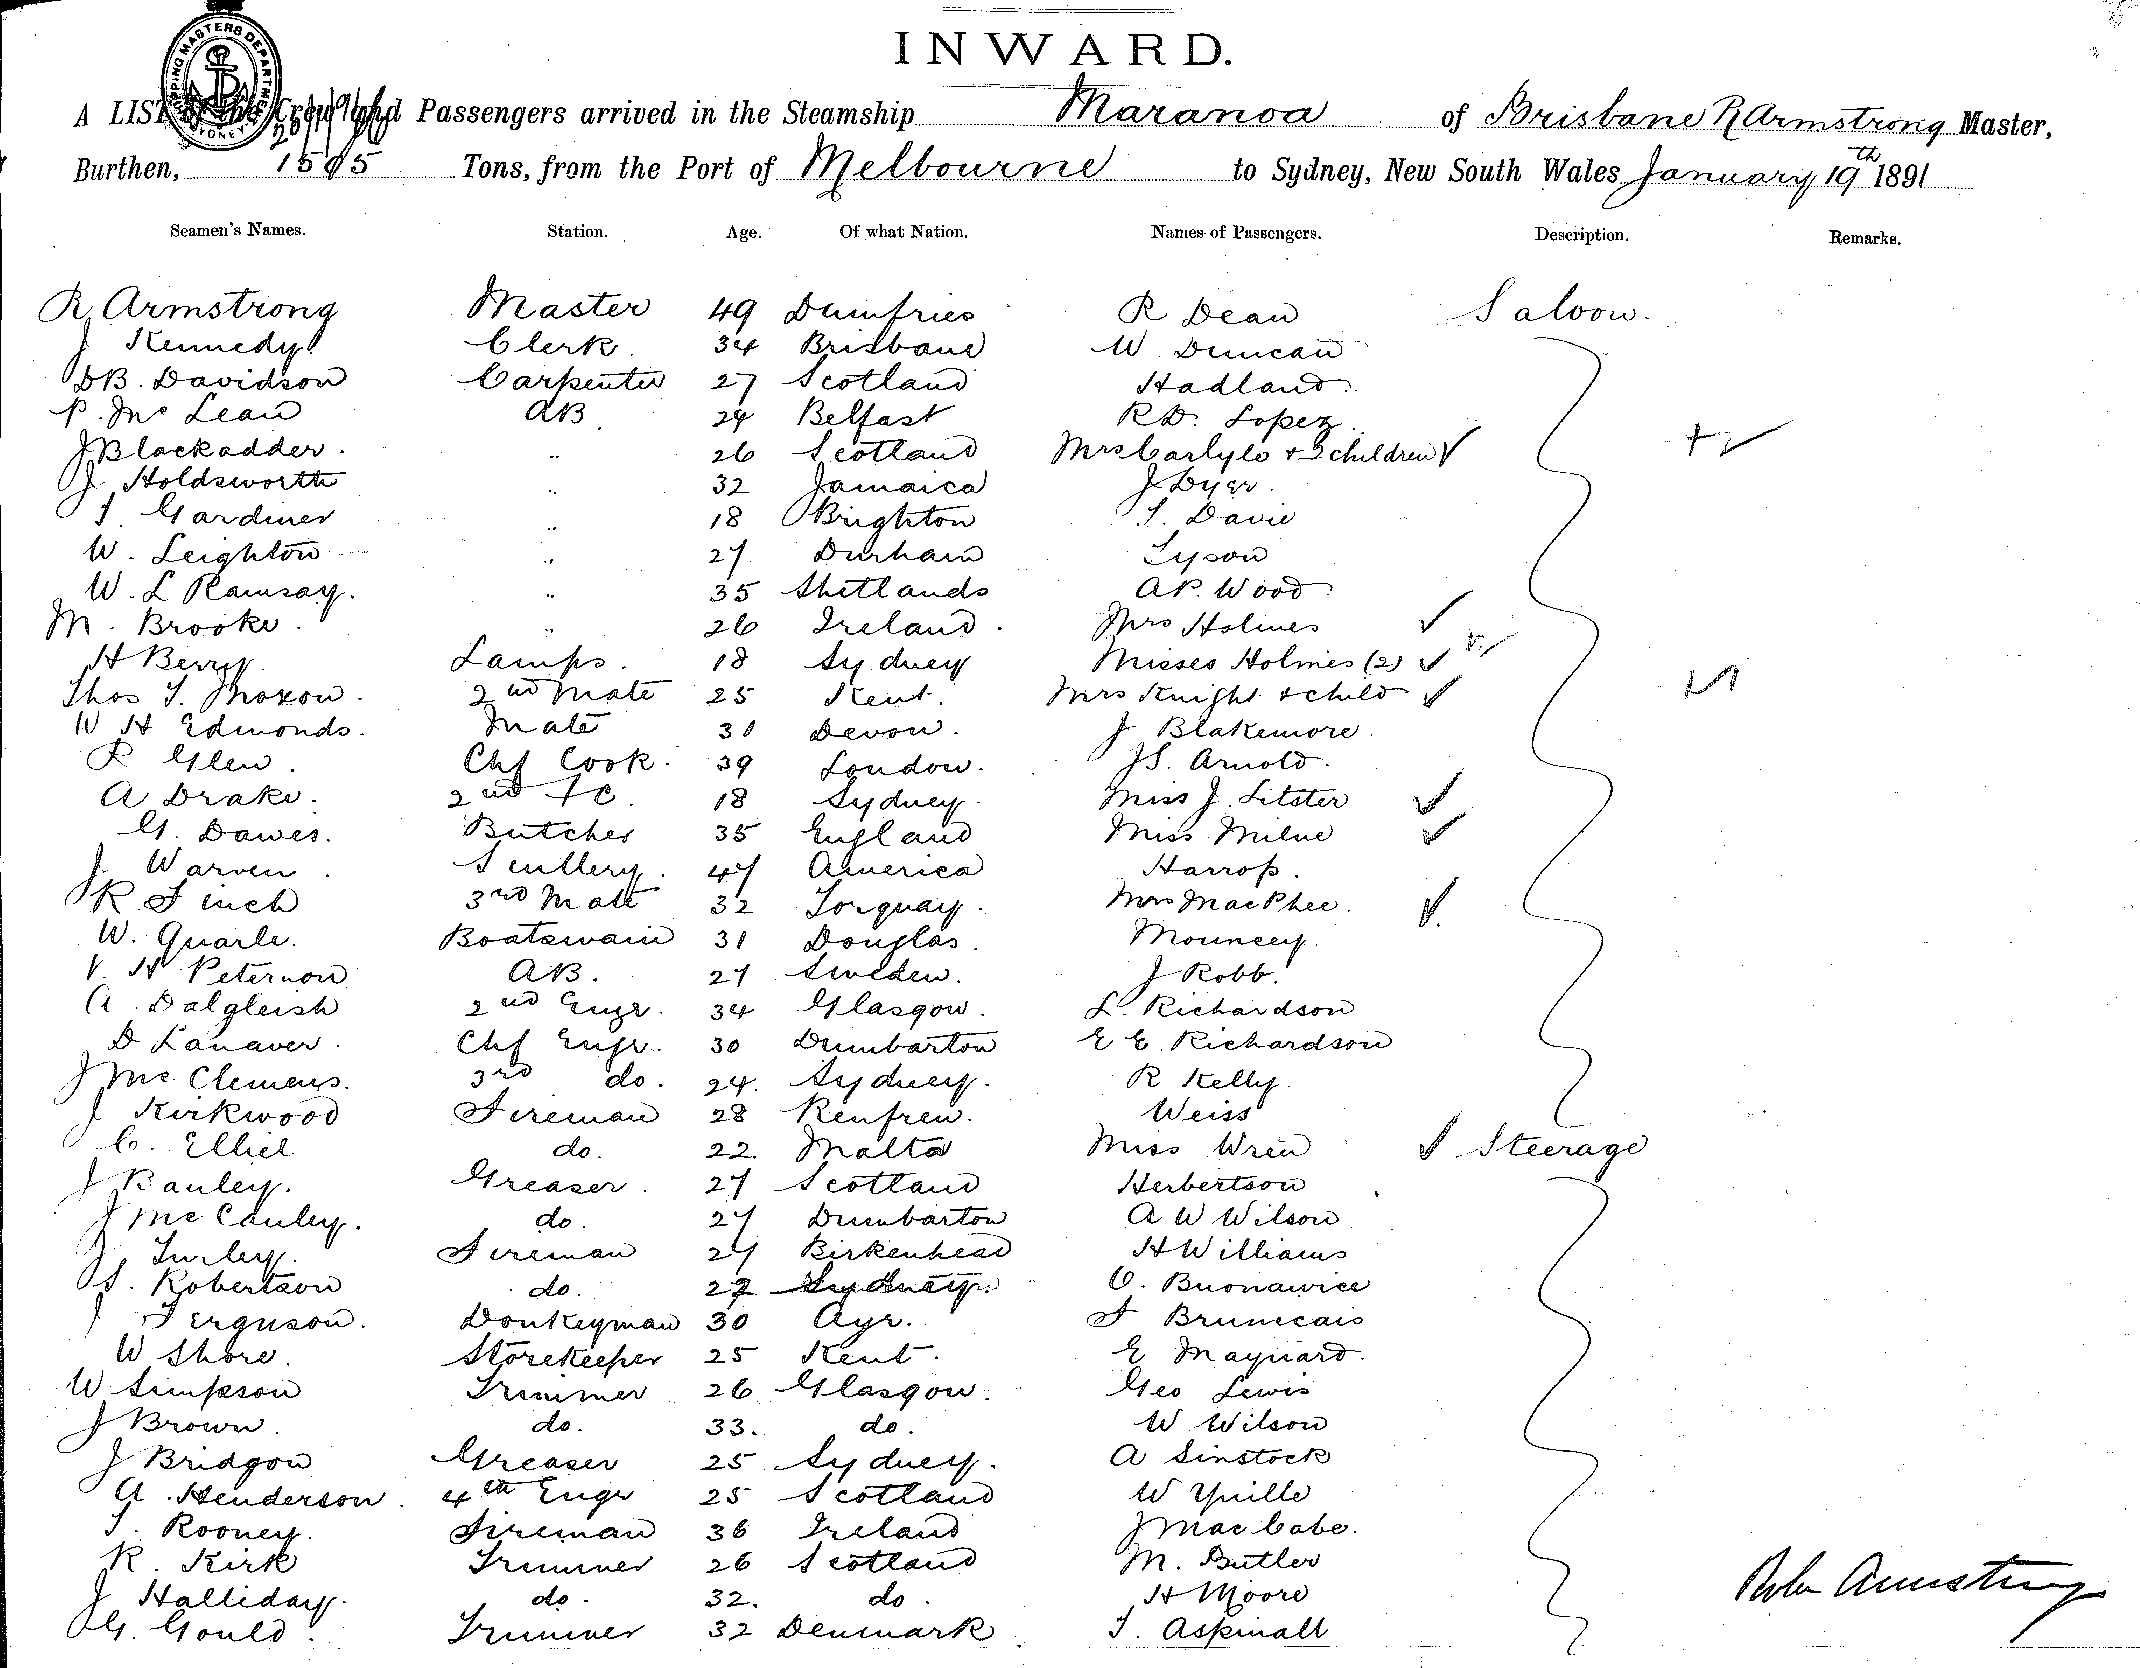 SHIPPING MASTERS DEPARTMENT SYDNEY
INWARD.
A LIST of the Crew and Passengers arrived in the Steamship Maranoa of Brisbane R Armstrong Master,
Burthen, 1505 Tons, from the Port of Melbourne to Sydney, New South Wales January 19th 1891
Seamen's Names. Station. Age. Of what Nation. Names of Passengers. Description. Remarks.
R Armstrong Master 49 Dumfries R Dean Saloon.
J Kennedy Clerk 34 Brisbane W Duncan
DB. Davidson Carpenter 27 Scotland Hadland
P. McLean AB 24 Belfast RD. Lopez
J Blackadder. " 26 Scotland Mrs Carlyle + 2 children
J Holdsworth " 32 Jamaica J Dyer.
T Gardiner " 18 Brighton T. Davie
W. Leighton " 27 Durham Lyson
W. L Ramsay. " 35 Shetlands AP. Wood
M. Brooke. " 26 Ireland. Mrs Holmes
H Berry. Lamps. 18 Sydney Misses Holmes (2)
Thos T. Moxon. 2nd Mate 25 Kent. Mrs Knight + child
W H Edmonds. Mate 31 Devon. J Blakemore.
R Glen. Chf Cook. 39 London. JS. Arnold.
A Drake. 2nd 18 Sydney. Miss J. Litster
G. Dawes. Butcher 35 England Miss Milne
J Warren. Scullery. 47 America Harrop.
R Finch 3rd Mate 32 Torquay. Mrs MacPhee.
W. Quarle. Boatswain 31 Douglas. Mouncey.
V. H Peterson AB. 27 Sweden. J Robb.
A. Dalgleish 2nd Engr. 34 Glasgow. L. Richardson
D Lanaver. Chf Engr. 30 Dumbarton E E. Richardson
J McClemens. 3rd do. 24. Sydney. R Kelly.
J Kirkwood Fireman 28 Renfrew. Weiss
C. Elliel do. 22. Malta Miss Wren Steerage
J Bauley. Greaser. 27 Scotland Herbertson
J McCauley. do. 27 Dumbarton A W Wilson
J. Turley. Fireman 27 Birkenhead H Williams
S. Robertson do. 27 Sydney. C. Buonavice
J Ferguson. Donkeyman 30 Ayr. F Brunicais
W Shore. Storekeeper 25 Kent. E Maynard.
W Simpson Trimmer 26 Glasgow. Geo Lewis
J Brown. do. 33. do. W Wilson
J Bridgon Greaser 25 Sydney. A Sinstock
A. Henderson. 4th Engr 25 Scotland W Yuille
T. Rooney. Fireman 36 Ireland J MacCabe.
R. Kirk Trimmer 26 Scotland M. Butler
J Halliday. do. 32. do. H Moore
G. Gould. Trimmer 32 Denmark T. Aspinall
Armstrong